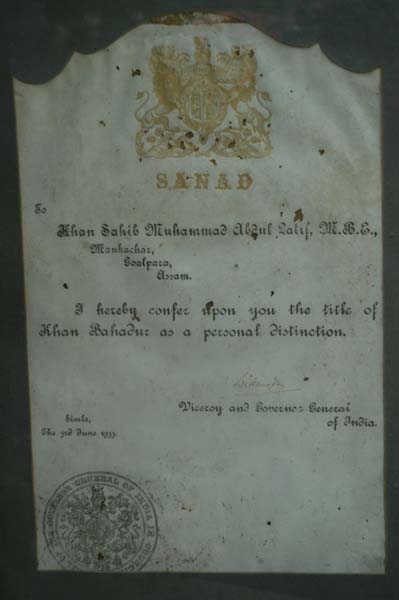 SANAD
To
Khan Sahib Muhammad Abdul Latif, M.B.E.,
Mankachar,
Goalpara,
Assam.
I hereby confer upon you the title of
Khan Bahadur as a personal distinction.
Viceroy and Governor General
of India.
Simla,
The 3rd June 1933.
GENERAL OF INDIA IN